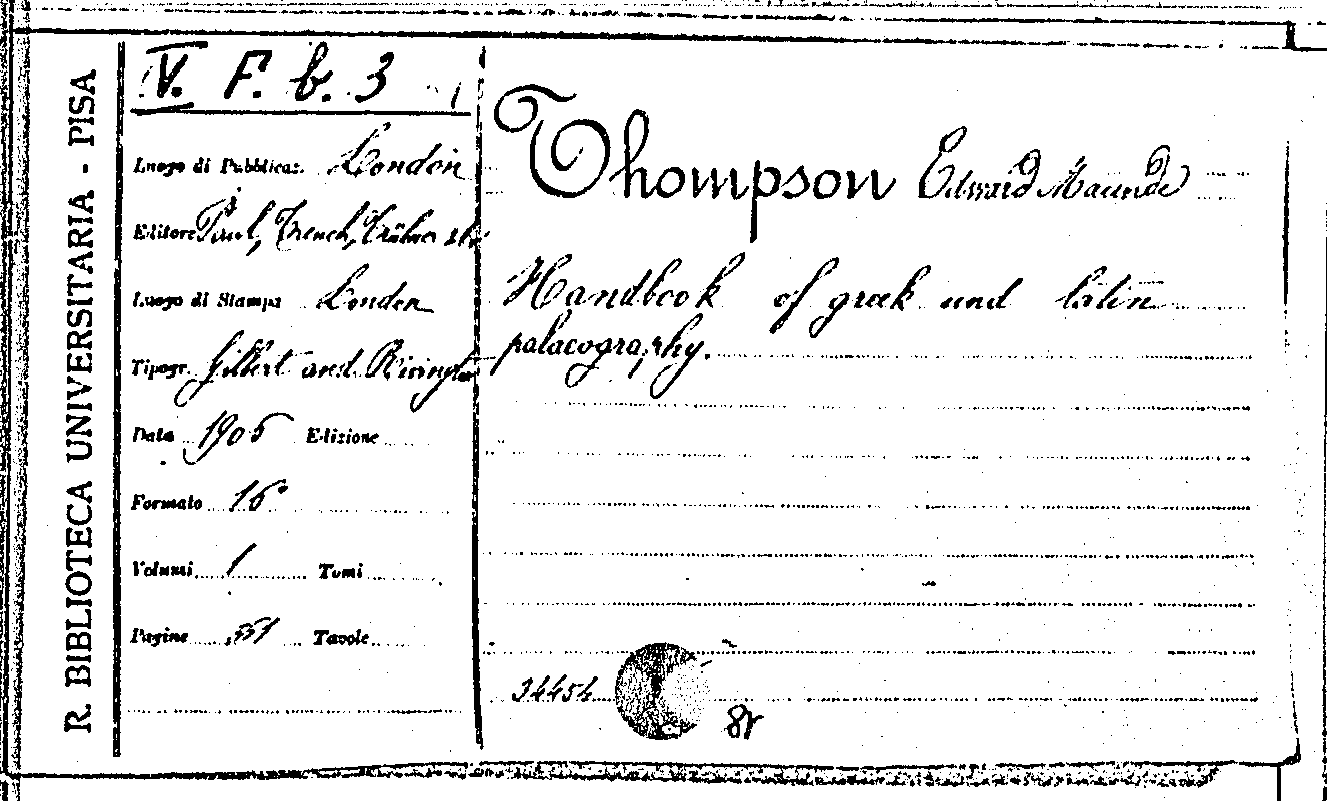 R. BIBLIOTECA UNIVERSITARIA - PISA
V. F. b. 3
Luogo di Pubblicaz. London
Editore Paul, Trench, Trübner & Co
Luogo di Stampa London
Tipogr. Gilbert and Rivington
Data 1906 Edizione
Formato 16°
Volumi 1 Tomi
Pagine Tavole
Thompson Edward Maunde
Handbook of greek und latin
palaeography.
34454